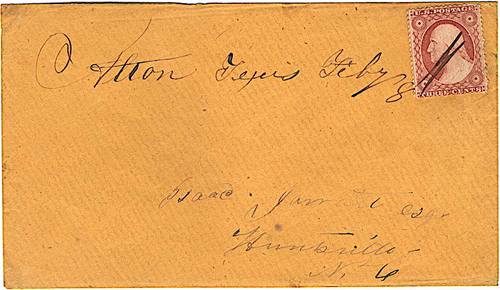 U.S. POSTAGE
THREE CENTS
Alton Texas Feby 8
Isaac Esq
Huntsville
N.